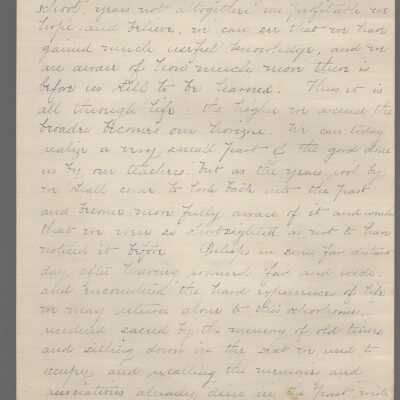 school years not altogether unprofitable we
hope and believe, we can see that we have
gained much useful knowledge, and we
are aware of how much more there is
before us still to be learned. Thus it is
all through life. the higher we ascend the
broader becomes our horizon. We can today
realize a very small part of the good done
us by our teachers. but as the years roll by
we shall come to look back into the past
and become more fully aware of it and wonder
that we were so shortsighted as not to have
noticed it before. Perhaps in some far distant
day after having roamed far and wide
and encountered the hard experience of life
we may return alone to this schoolhouse,
rendered sacred by the memory of old times
and sitting down in the seat we used to
occupy and recalling the memories and
associations already deep in the past, with